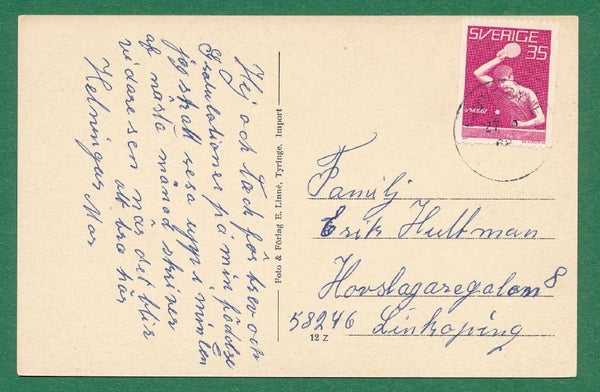 Hej och Tack för brev och
Gratulationer på min föddse
jag skall resa upp i mitten
af nästa månad skriver
vidare sen när det blir
allt bra här
Helningar Mor
Foto & Förlag E. Linné, Tyringe. Import
12 Z
SVERIGE
35
Familj
Erik Hultman
Hovslagaregatan 8
58246 Linköping